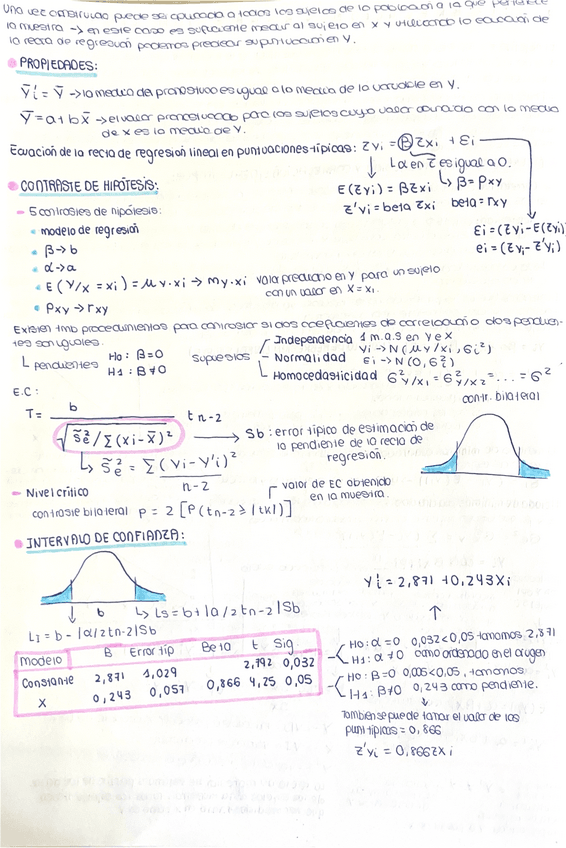 Una vez construida puede ser aplicada a todos los sujetos de la población a la que pertenece
la muestra -> en este caso es suficiente medir al sujeto en X y utilizando la ecuación de
la recta de regresión podemos predecir su puntuación en Y.
PROPIEDADES:
Ȳ'i = Ȳ -> la media del pronóstico es igual a la media de la variable en Y.
Ȳ = a + b X̄ -> el valor pronosticado para los sujetos cuyo valor coincida con la media
de X es la media de Y.
Ecuación de la recta de regresión lineal en puntuaciones típicas: Zyi = β Zxi + Ei
L α en Z es igual a 0.
E(Zyi) = βZxi β = ρxy
Z'yi = beta Zxi beta = rxy
Ei = (Zyi - E(Zyi)
ei = (Zyi - Z'yi)
CONTRASTE DE HIPÓTESIS:
- 5 contrastes de hipótesis:
modelo de regresión
β -> b
α -> a
E(Y/X = xi) = μy·xi -> my·xi valor predicho en Y para un sujeto
con un valor en X = xi.
ρxy -> rxy
Existen tmb procedimientos para contrastar si dos coeficientes de correlación o dos pendien-
tes son iguales.
L pendientes H0: β=0
H1: β≠0
supuestos
Independencia 1 m.a.s en Y e X
Normalidad Yi -> N(μy/xi, σi²)
Ei -> N(0, σi²)
Homocedasticidad σ²y/x1 = σ²y/x2 = ... = σ²
E.C:
contr. bilateral
T = b / √(S̃e² / Σ(xi - X̄)²) t n-2
-> Sb: error típico de estimación de
la pendiente de la recta de
regresión.
S̃e² = Σ(Yi - Y'i)² / n-2
- Nivel crítico
valor de EC obtenido
en la muestra.
contraste bilateral p = 2 [P(tn-2 ≥ |tk|)]
INTERVALO DE CONFIANZA:
b
Ls = b + |α/2 tn-2| Sb
LI = b - |α/2 tn-2| Sb
Y'i = 2,871 + 0,243Xi
Modelo B Error tip Beta t Sig.
Constante 2,871 1,029 2,792 0,032
X 0,243 0,057 0,866 4,25 0,05
H0: α=0 0,032<0,05 tomamos 2,871
H1: α≠0 como ordenada en el origen
H0: β=0 0,005<0,05, tomamos
H1: β≠0 0,243 como pendiente.
También se puede tomar el valor de las
punt típicas = 0,866
Z'yi = 0,866Zxi